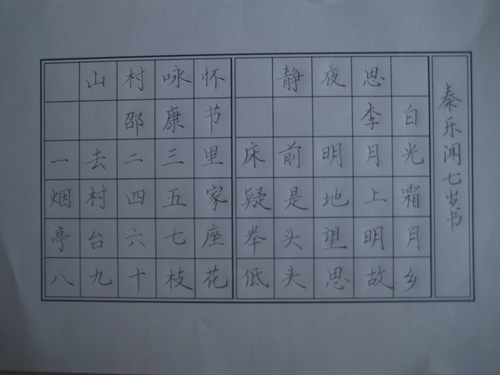 山村咏怀
邵康节
一去二三里
烟村四五家
亭台六七座
八九十枝花
静夜思
李白
床前明月光
疑是地上霜
举头望明月
低头思故乡
秦乐闻七岁书